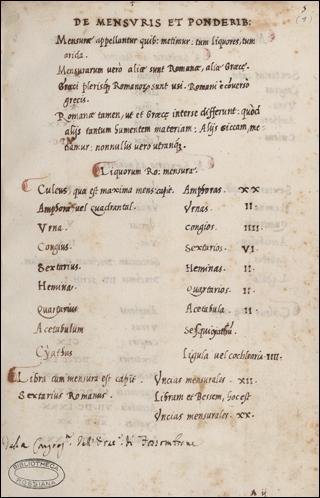 5
(1)
DE MENSVRIS ET PONDERIB:
Mensuræ appellantur quib: metimur: tum liquores, tum
arida.
Mensurarum verò aliæ sunt Romanæ, aliæ Græcę.
Græci pleriſq; Romanor, sunt usi. Romani è cõuersò
grecis.
Romanæ tamen, ut et Græcę interse differunt: quòd
alijs tantum humentem materiam: Alijs siccam, me
tiamur: nonnullis vero utranq;.
Liquorum Ro: mensura.
Culeus qua est maxima mens: capiẽ. Amphoras. XX.
Amphora vel quadrantal. Vrnas. II.
Vrna. congios. IIII.
Congius. Sextarios. VI
Sextarius. Heminas. II.
Hemina. Quartarios. II.
Quartarius Acetabula. II
Acetabulum Sesquicyathũ.
Cyathus Ligula vel cochlearia. IIII.
Libra cum mensura est capiẽ. Vncias mensurales. XII.
Sextarius Romanus. Libram et Bessem, hoc est
Vncias mensurales. XX.
BIBLIOTHECA
ROSSIANA
A ij